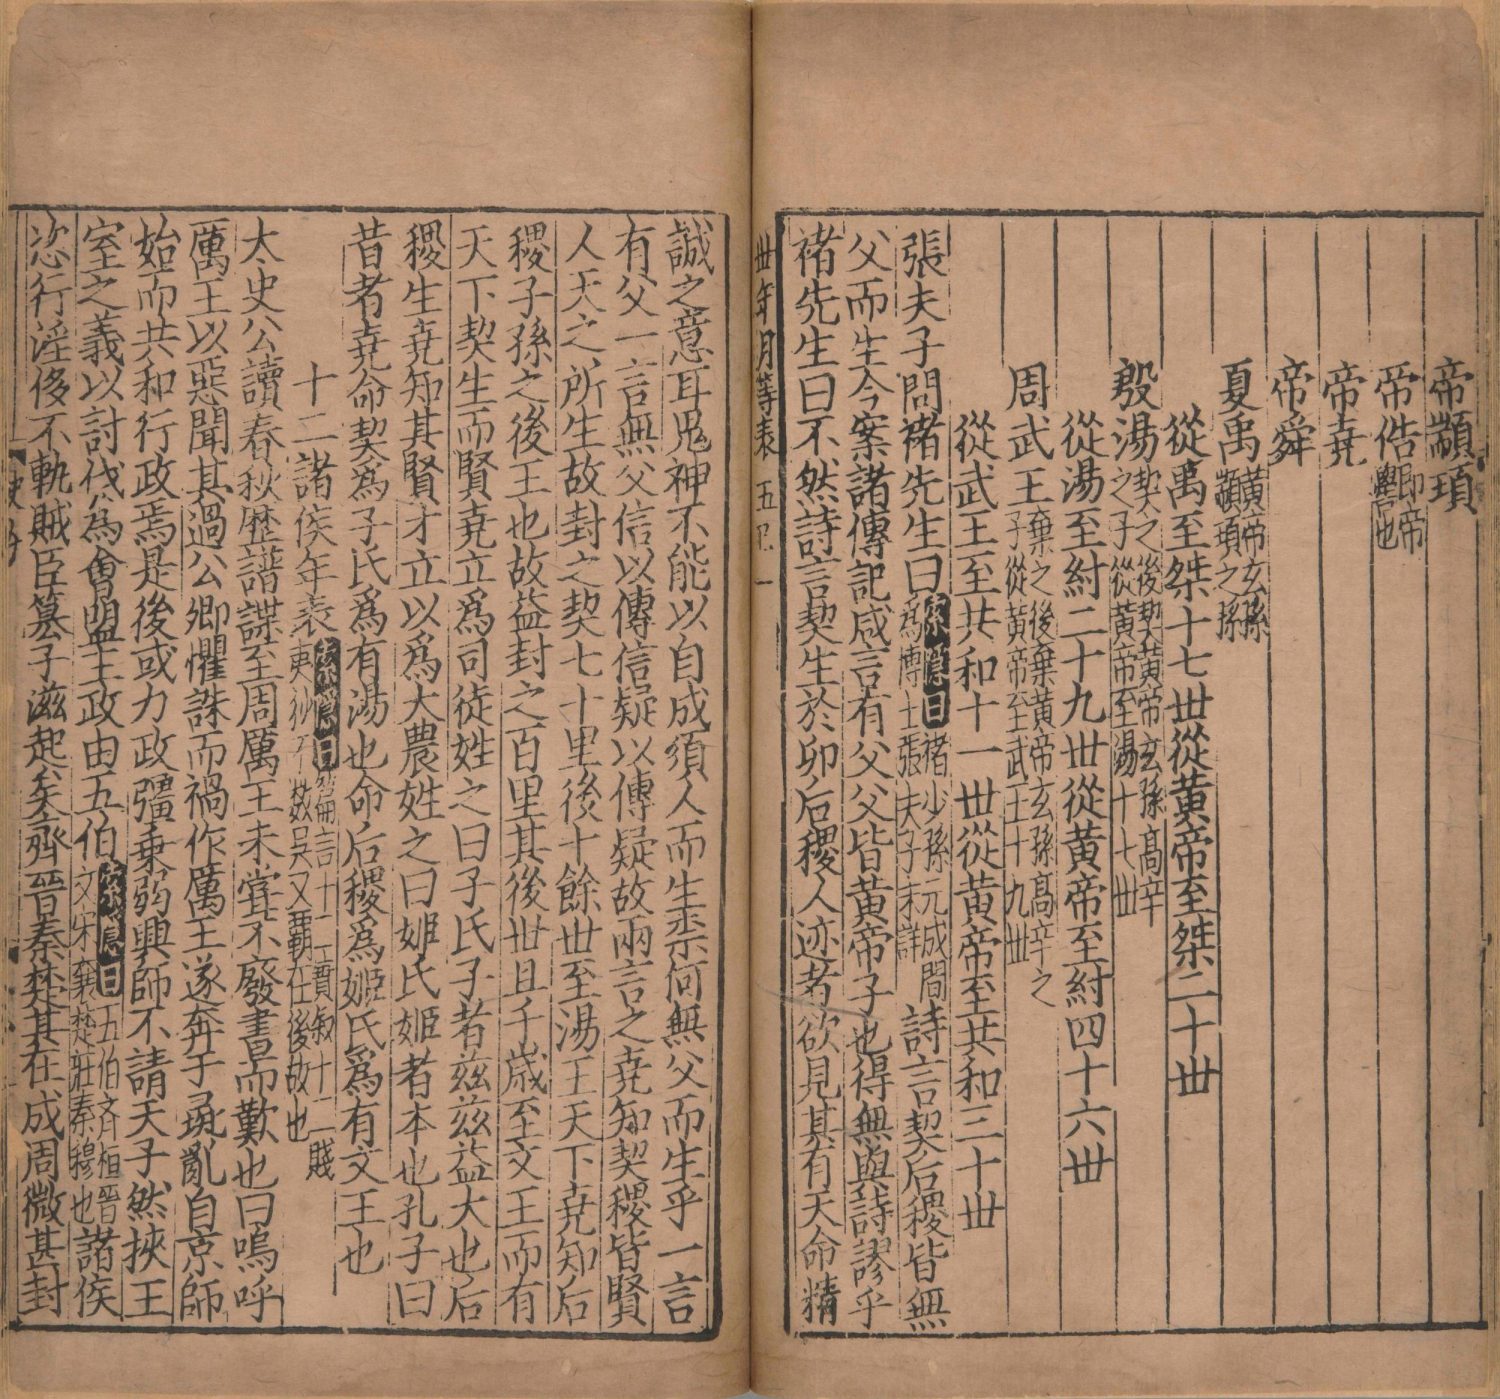 帝顓頊
帝俈即帝嚳也
帝堯
帝舜
夏禹黄帝玄孫顓頊之孫
從禹至桀十七丗從黄帝至桀二十丗
殷湯契之後契黄帝玄孫髙辛之子從黄帝至湯十七丗
從湯至紂二十九丗從黄帝至紂四十六丗
周武王棄之後棄黄帝玄孫髙辛之子從黄帝至武王十九丗
從武王至共和十一丗從黄帝至共和三十丗
張夫子問褚先生曰索隱曰褚少孫元成間爲博士張夫子未詳詩言契后稷皆無
父而生今案諸傳記咸言有父父皆黄帝子也得無與詩謬乎
褚先生曰不然詩言契生於卵后稷人迹者欲見其有天命精
丗年月等表 五 一
誠之意耳鬼神不能以自成須人而生柰何無父而生乎一言
有父一言無父信以傳信疑以傳疑故兩言之堯知契稷皆賢
人天之所生故封之契七十里後十餘丗至湯王天下堯知后
稷子孫之後王也故益封之百里其後丗且千歳至文王而有
天下契生而賢堯立爲司徒姓之曰子氏子者兹兹益大也后
稷生堯知其賢才立以爲大農姓之曰姬氏姬者本也孔子曰
昔者堯命契爲子氏爲有湯也命后稷爲姬氏爲有文王也
十二諸侯年表索隱曰篇言十二實叙十二賤夷狄不數吴又覇在後故也
太史公讀春秋歴譜諜至周厲王未甞不廢書而歎也曰嗚呼
厲王以惡聞其過公卿懼誅而禍作厲王遂奔于彘亂自京師
始而共和行政焉是後或力政彊乗弱興師不請天子然挾王
室之義以討伐爲會盟主政由五伯索隱曰五伯齊桓晉文宋襄楚莊秦穆也諸侯
恣行淫侈不軌賊臣篡子滋起矣齊晉秦楚其在成周微甚封